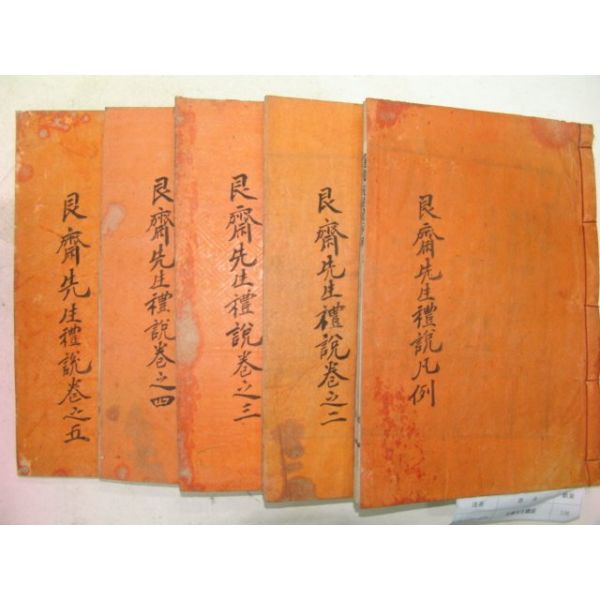 艮齋先生禮說凡例
艮齋先生禮說卷之二
艮齋先生禮說卷之三
艮齋先生禮說卷之四
艮齋先生禮說卷之五